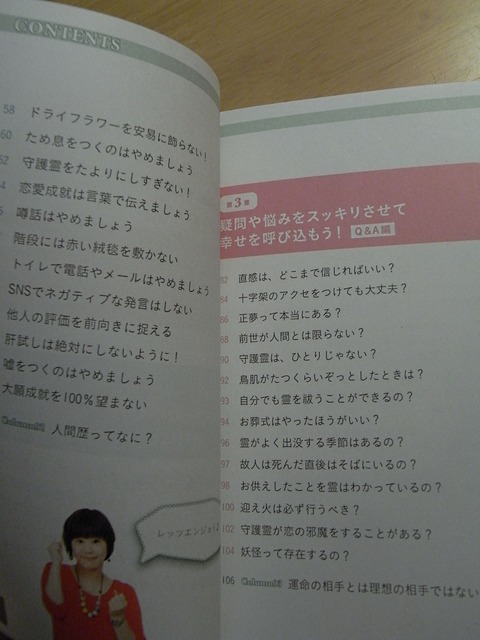 CONTENTS
58 ドライフラワーを安易に飾らない！
60 ため息をつくのはやめましょう
62 守護霊をたよりにしすぎない！
恋愛成就は言葉で伝えましょう
噂話はやめましょう
階段には赤い絨毯を敷かない
トイレで電話やメールはやめましょう
SNSでネガティブな発言はしない
他人の評価を前向きに捉える
肝試しは絶対にしないように！
嘘をつくのはやめましょう
大願成就を100％望まない
人間歴ってなに？
第3章
疑問や悩みをスッキリさせて
幸せを呼び込もう！ Q&A編
82 直感は、どこまで信じればいい？
84 十字架のアクセをつけても大丈夫？
86 正夢って本当にある？
88 前世が人間とは限らない？
90 守護霊は、ひとりじゃない？
92 鳥肌がたつくらいぞっとしたときは？
93 自分でも霊を祓うことができるの？
94 お葬式はやったほうがいい？
96 霊がよく出没する季節はあるの？
97 故人は死んだ直後はそばにいるの？
98 お供えしたことを霊はわかっているの？
100 迎え火は必ず行うべき？
102 守護霊が恋の邪魔をすることがある？
104 妖怪って存在するの？
106 Column03 運命の相手とは理想の相手ではない